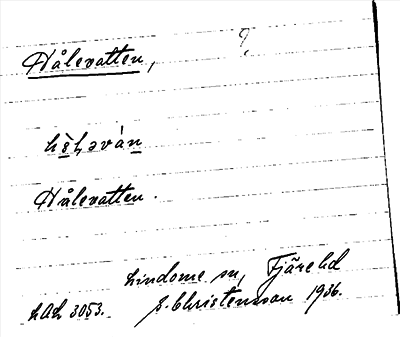 Hålevatten, ?
Hålevatten.
Lindome sn, Fjäre hd
LAL 3053. S. Christensson 1936.